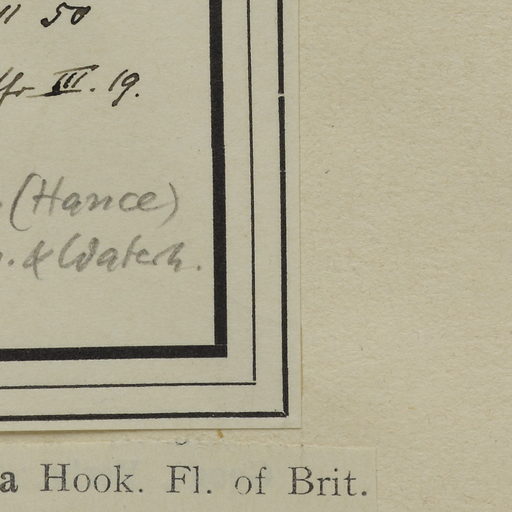 50
III. 19.
(Hance)
& Waterh.
a Hook. Fl. of Brit.